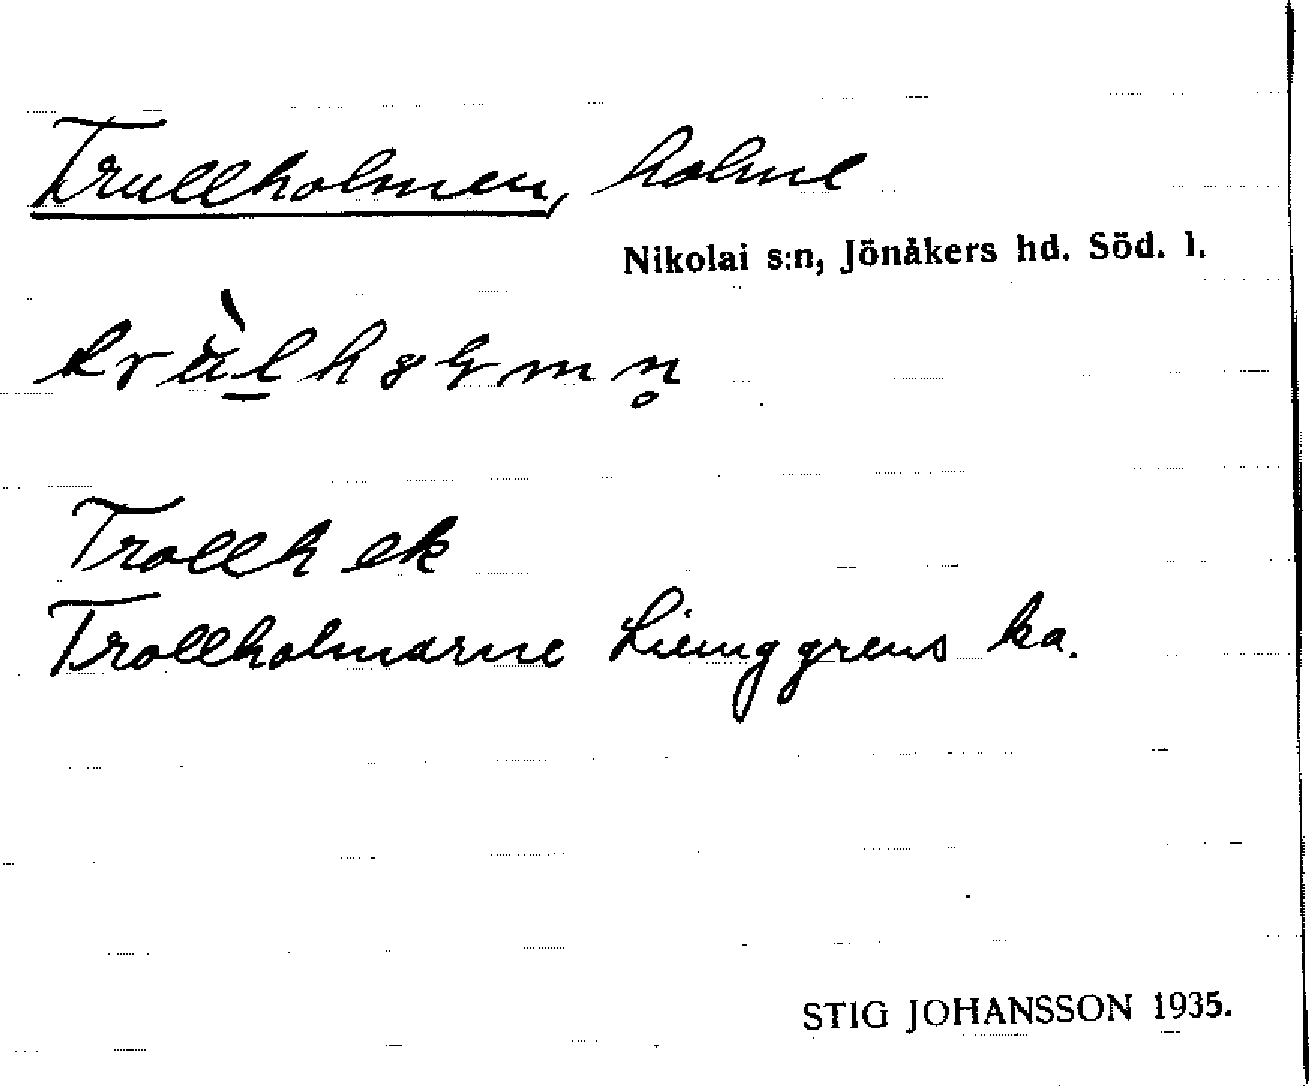 Trullholmen, holme
Nikolai s:n, Jönåkers hd. Söd. l.
Trollh ek
Trollholmarne Liunggrens ka.
STIG JOHANSSON 1935.